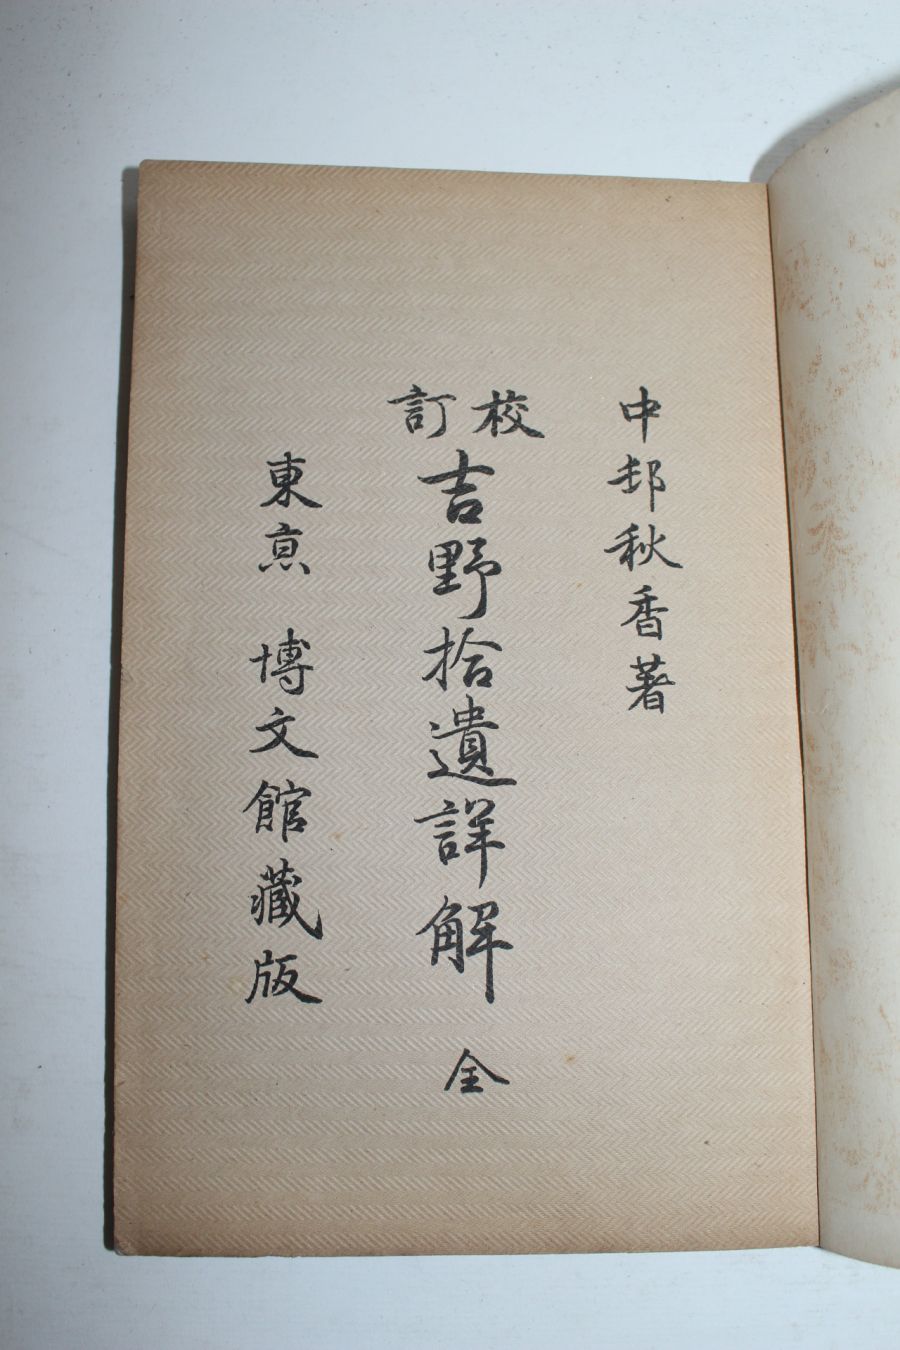 中邨秋香著
校訂
吉野拾遺詳解 全
東亰 博文館藏版